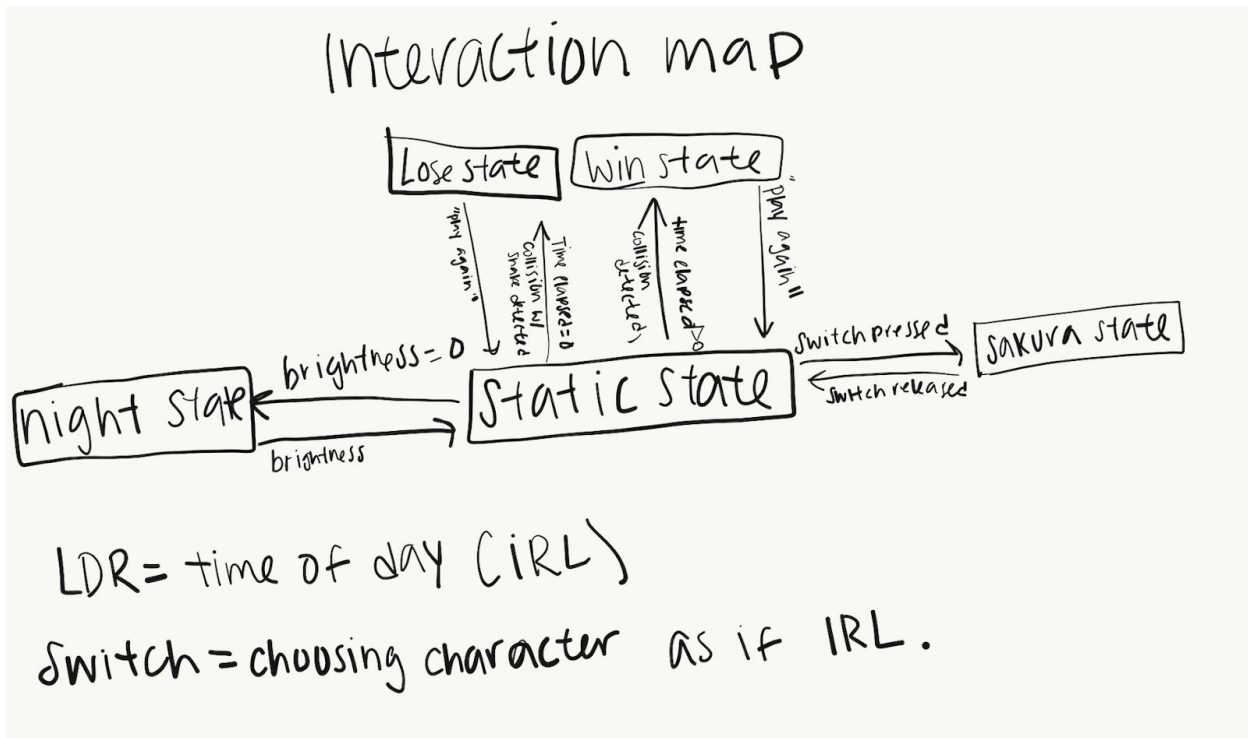 Interaction map
Lose state
Win state
"play again"
collision w/
snake detected
Time elapsed=0
collision
detected,
time elapsed>0
"play again"
brightness=0
night state
brightness
static state
switch pressed
switch released
sakura state
LDR= time of day (iRL)
Switch=choosing character as if IRL.